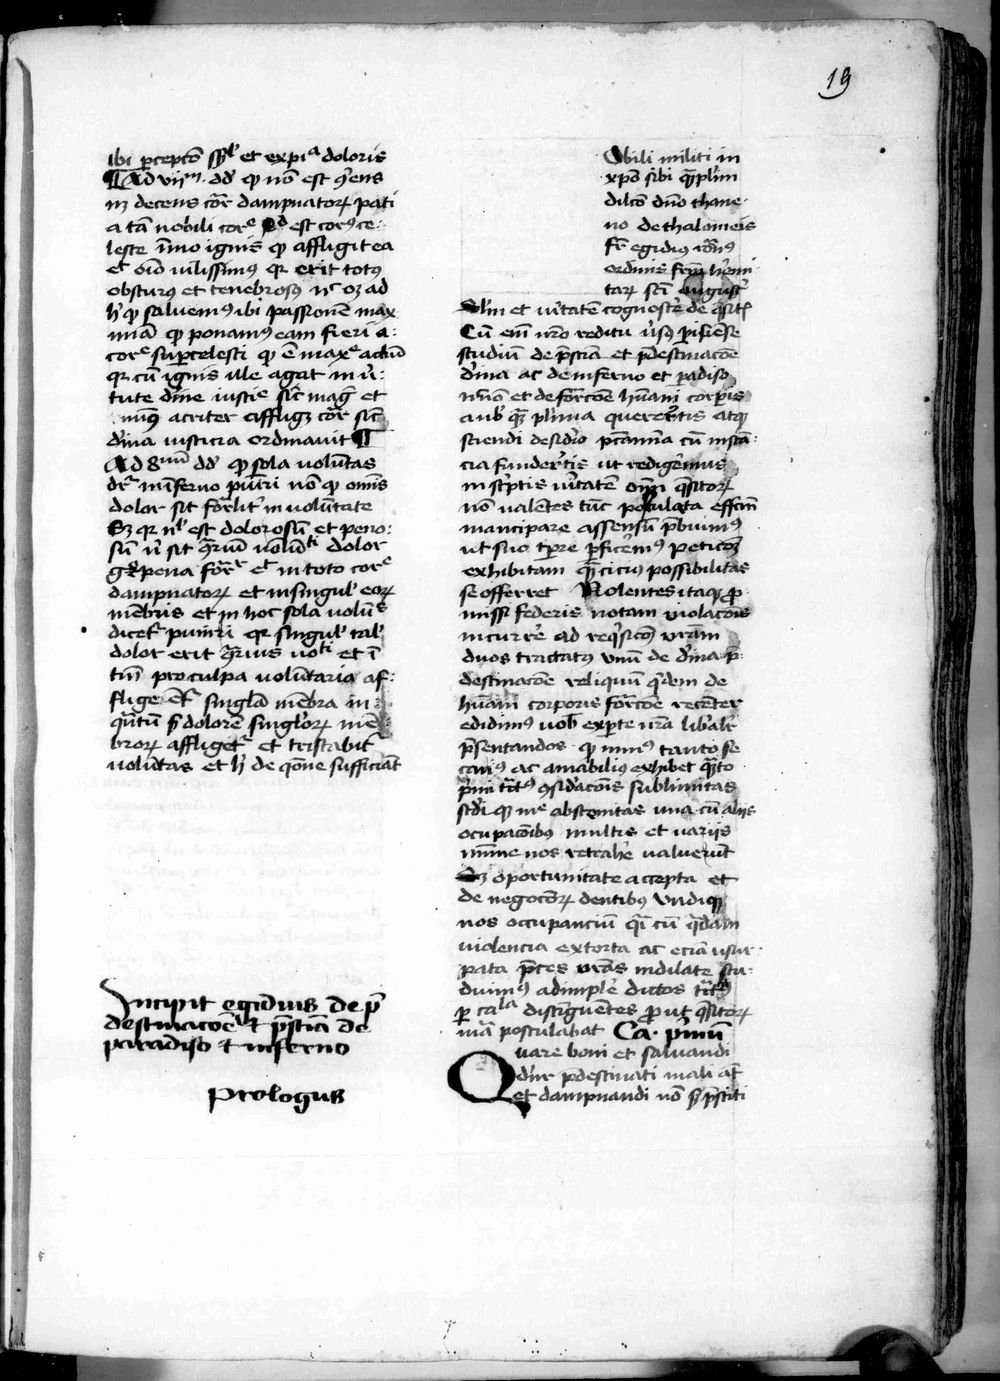 19
ibi p̄ceptō sp̄l et expiª doloris
¶ Ad vijᵐ. dd̄ qͦ nō est 9ͬens
nꝫ decens cōr dampnatoꝝ pati
a tā nobili corͤ Sꝫ est corꝰ ce-
leste īmo ignis qͦ affligit ea
et oīo vilissimꝰ qꝛ erit totꝰ
obscurꝰ et tenebrosꝰ nͨ oꝫ ad
hͨ qͦ saluemꝰ ibi passionē max
imā qͦ ponamꝰ eam fieri a-
corͤ sup̄celesti qͦ ē maxͤ actiū
qꝛ cū ignis ille agat in v̄-
tute dīne iusticͤ sic̄ maḡ et
minꝰ acriter affligꝫ cōr sic̄
dīna iusticia ordinauit ¶
Ad 8ᵘᵐ dd̄ qͦ sola volūtas
dr̄ in īferno pūiri nō qͦ omīs
dolor sit foꝛ̄lit̄ in voluntate
Sꝫ qꝛ nˡ est dolorosū et peno-
sū n̄ sit 9ͬriū volūᵗⁱ dolor
et in toto corͤ
dampnatoꝝ et in singul̄ eoꝝ
mēbris et in hoc sola volūs
dicet̄ puniri qꝛ singul̄ tal̄
dolor erit 9ͬrius voᵗⁱ et ī
tm̄ pro culpa volūtaria af-
flige nt̄ singla mēbra in-
qͣtū s̄ dolorē singl̄oꝝ mē-
broꝝ affliget̄ et tristabit̄
volūtas et hͨ de qōne sufficiāt
Incipit egidius de p̄
destinacōe et p̄sciā de
paradiso et inferno
Prologus
Nobili militi in
xp̄o sibi qͣm pl̄im
dilcō dn̄o thane-
no de thalomeis
fr̄ egidiꝰ rōnꝰ
ordinis frm̄ hͤmi-
taꝝ scī august̄
Sal̄m et v̄itatē cognoscͤre de qͣsitꝭ
Cū em̄ nr̄o reditu v̄sꝰ p̄isiēse
studiū de p̄scia et p̄destinacōe
dīna ac de inferno et padiso
nͨnō et de formͣcōe hūani corpīs
a nob̄ qͣm pl̄ima quererͤtis atqꝫ
sciendi desid̄io p̄camīa cū instā-
cia funderͤtis ut redigͤremus
in scp̄tis v̄itatē om̄ qͣsitoꝝ
nō valētes tūc postulata effcūi
mancipare assensū p̄buimꝰ
ut suo tp̄re p̄ficeremꝰ peticōꝫ
exhibitam qͣm cicius possibilitas
se offerret Nolentes itaqꝫ p̄-
missi federis notam violacōis
incurrͤ ad reqͥsicōꝫ vrām
duos tractatꝰ vnū de dīna p̄-
destinacōe reliquū qͥdem de
hūani corporis formͣcōe recēter
edidimꝰ vob̄ ex p̄te nr̄a lib̄alr̄
p̄sentandos qͦ minꝰ tanto se
carꝰ ac amabiliꝰ exhibet qͣto
p̄mi tct̄ꝰ 9sid̄acōis sublimitas
scd̄i qꝫ mͤ absconitas vna cū alijs
ocupacōibꝰ multis et varijs
mīme nos retrahͤ valuerūt
Sꝫ oportunitate accepta et
de negocioꝝ dentibꝰ vndiqꝫ
nos occupanciū qͣi cū qͣdam
violencia extorta ac eciā vsur-
pata p̄ces vrās indilate stu-
duimꝰ adimplē dictos tct̄ꝰ
p̄ caᵖˡᵃ distīguētes p̄ut qͣsitoꝝ
mā postulabat Ca. p̄mū
Quare boni et saluandi
dr̄ p̄destinati mali at̄
et dampnandi nō s̄ p̄sciti